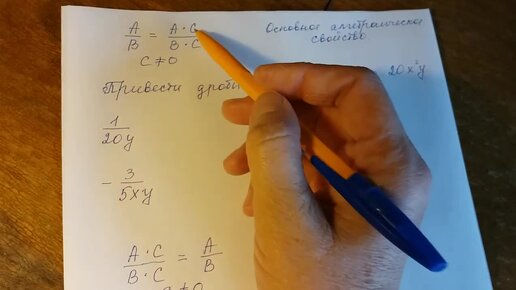 A/B = A·C/B·C
C≠0
Основное алгебраическое
свойство
Привести дроби
20x²y
1/20y
- 3/5xy
A·C/B·C = A/B
C≠0